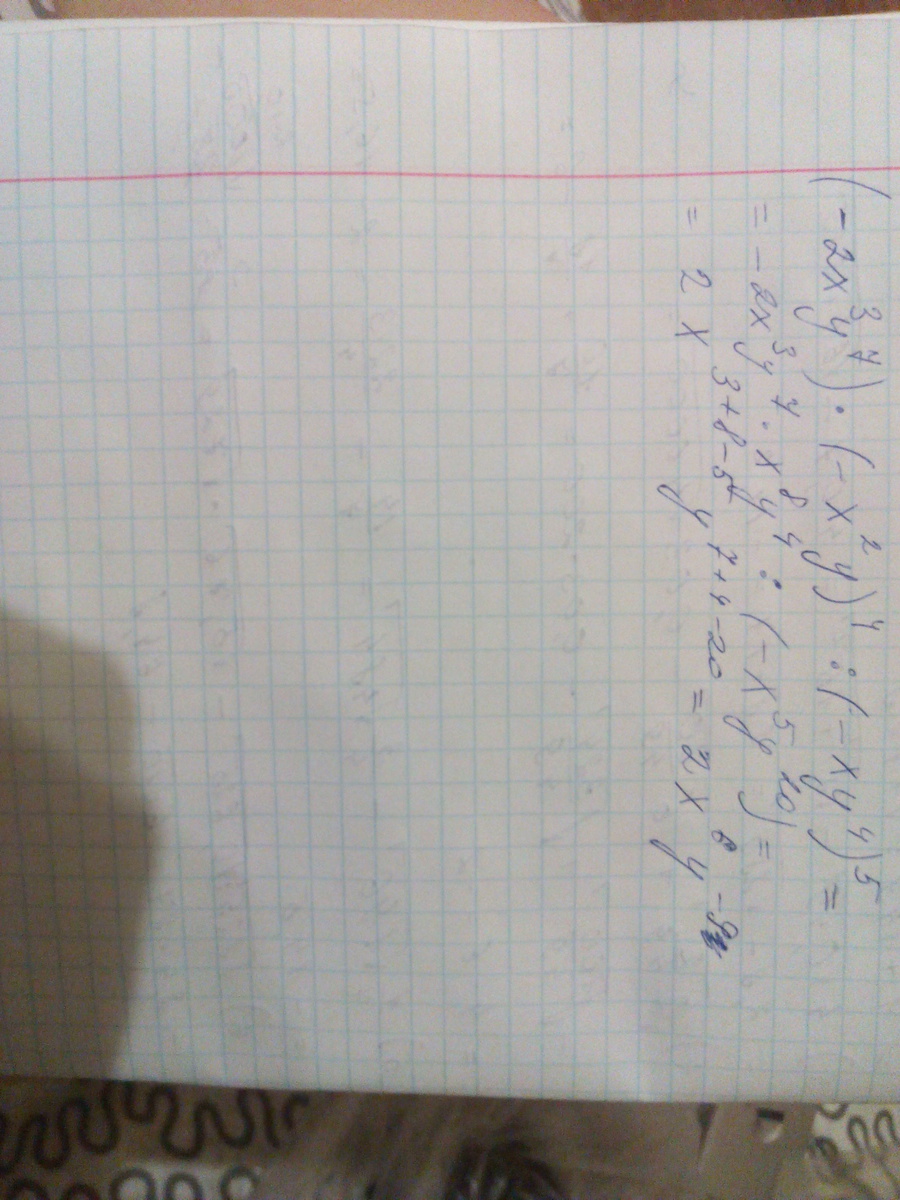 (-2x³y⁷)·(-x²y)⁴:(-xy⁴)⁵=
=-2x³y⁷·x⁸y⁴:(-x⁵y²⁰)=
=2x³⁺⁸⁻⁵y⁷⁺⁴⁻²⁰=2x⁶y⁻⁹